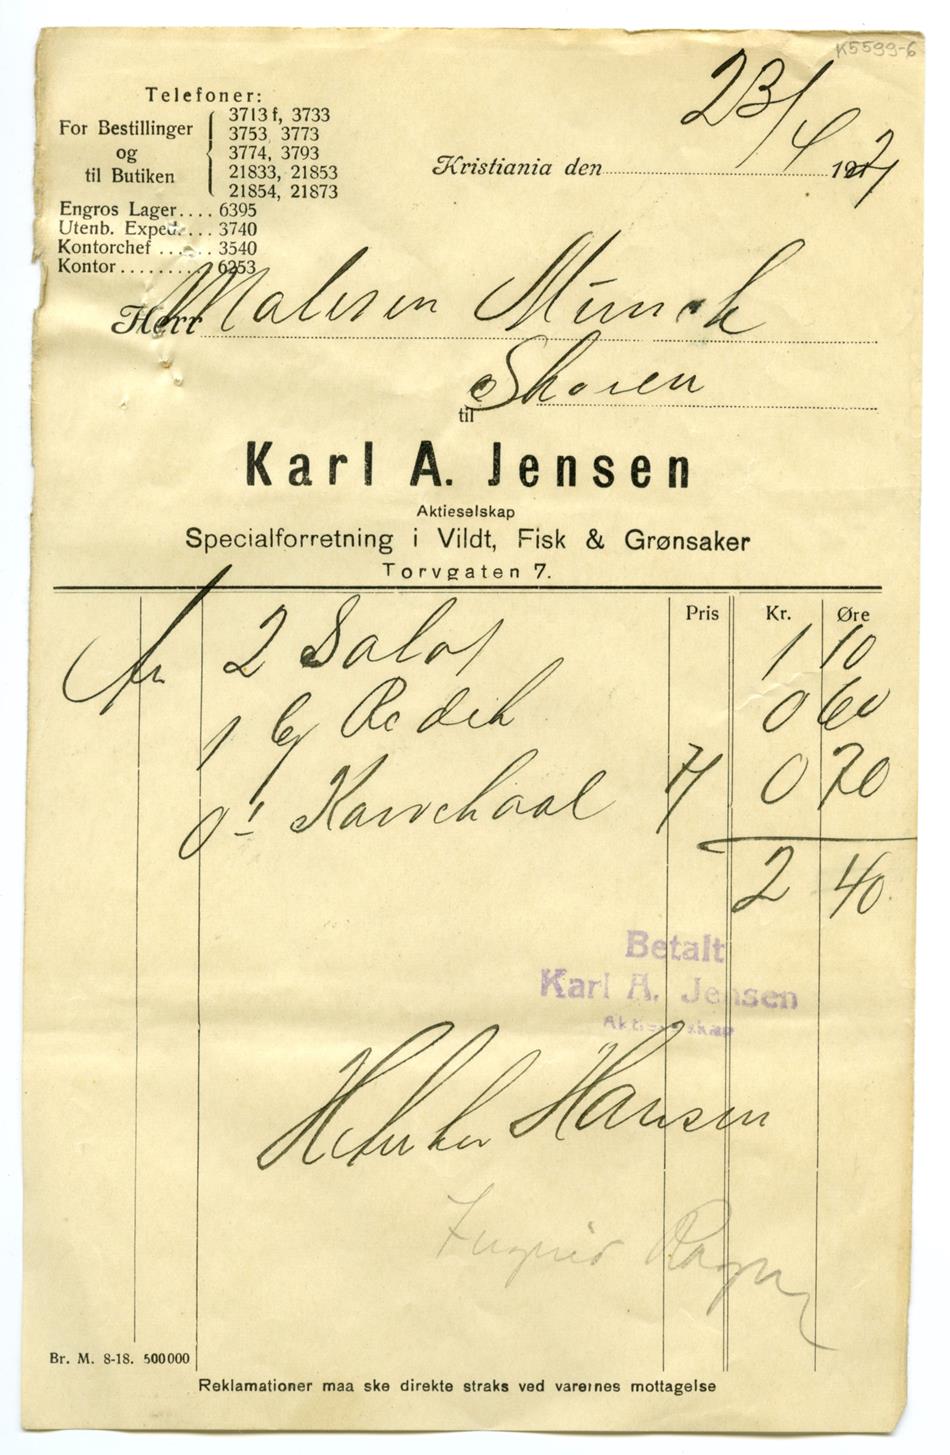 K5599-6
Telefoner:
For Bestillinger og til Butiken
3713 f, 3733
3753, 3773
3774, 3793
21833, 21853
21854, 21873
Engros Lager.... 6395
Utenb. Exped.... 3740
Kontorchef ...... 3540
Kontor......... 6253
Kristiania den 23/4 19
Herr Maleren Munck
Skoien
til
Karl A. Jensen
Aktieselskap
Specialforretning i Vildt, Fisk & Grønsaker
Torvgaten 7.
Pris Kr. Øre
2 Salat 1 10
1 Redik 0 60
0 0 70
2 40
Betalt
Karl A. Jensen
Aktieselskap
Hansen
Br. M. 8-18. 500000
Reklamationer maa ske direkte straks ved varernes mottagelse